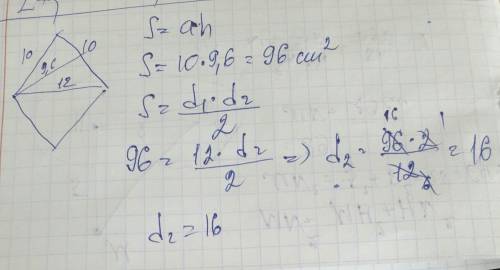 10
10
9,6
12
S = ah
S = 10 · 9,6 = 96 cm²
S = d₁ · d₂ / 2
96 = 12 · d₂ / 2 => d₂ = 96 · 2 / 12 = 16
16 1
6
d₂ = 16